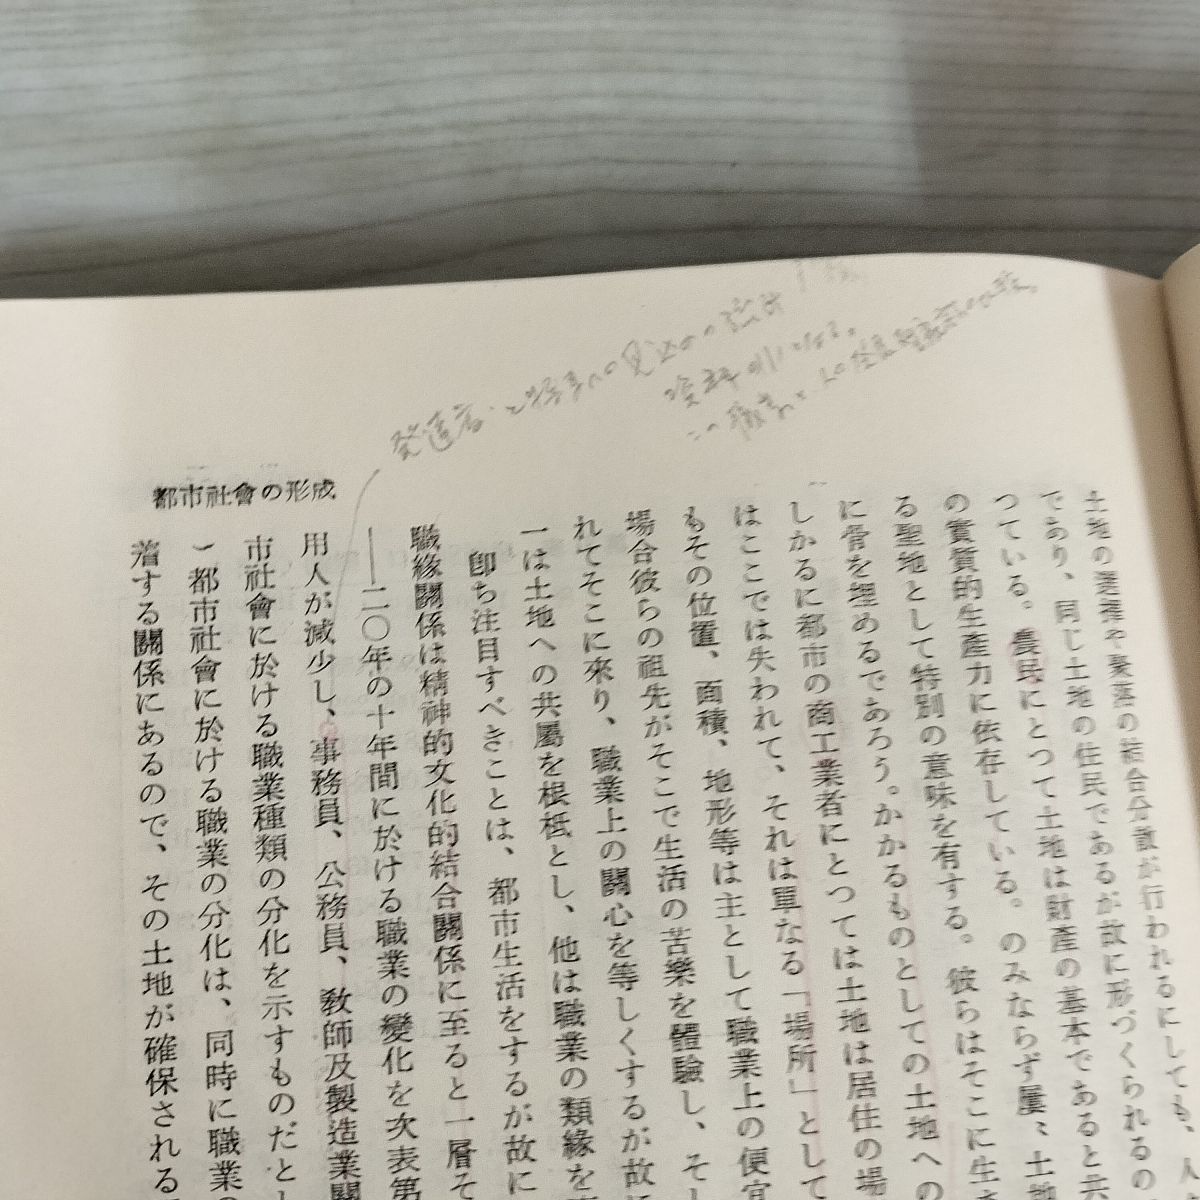 都市社會の形成
土地の選擇や聚落の結合分散が行われるにしても、人
であり、同じ土地の住民であるが故に形づくられるの
つている。農民にとつて土地は財產の基本であると元
の實質的生產力に依存している。のみならず屢〻土地
る聖地として特別の意味を有する。彼らはそこに生
に骨を埋めるであろう。かかるものとしての土地への
しかるに都市の商工業者にとつては土地は居住の場
はここでは失われて、それは單なる「場所」として
もその位置、面積、地形等は主として職業上の便宜
場合彼らの祖先がそこで生活の苦樂を體驗し、そし
れてそこに來り、職業上の關心を等しくするが故に
一は土地への共屬を根柢とし、他は職業の類緣を
卽ち注目すべきことは、都市生活をするが故に
職緣關係は精神的文化的結合關係に至ると一層そ
――二〇年の十年間に於ける職業の變化を次表第
用人が減少し、事務員、公務員、敎師及製造業關
市社會に於ける職業種類の分化を示すものだとし
都市社會に於ける職業の分化は、同時に職業の
着する關係にあるので、その土地が確保される